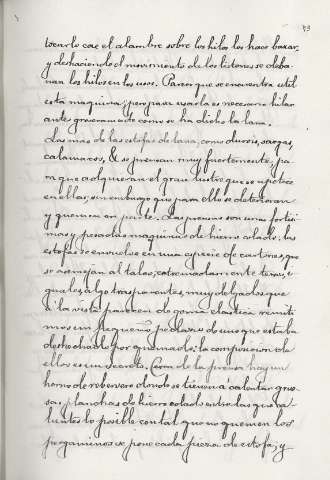 73
tocarlo cae el alambre sobre los hilos los hace baxar,
y deshaciendo el movimiento de los listones se deba-
nan los hilos en los usos. Parece que se encuentra util
esta maquina; pero para usarla es necesario hilar
antes groseramente como se ha dicho la lana.
Las mas de las estofas de lana, como durois, sargas,
calamacos, & se prensan muy fuertemente, pa-
ra que adquieran el gran lustre que se apetece
en ellas, sin embargo que para ello se deterioran
y queman en parte. Las prensas son unas fortisi-
mas y pesadas maquinas de hierro colado; las
estofas se envuelven en una especie de cartones, que
se asemejan al talco, extremadamente tersos, e
iguales, algo trasparentes, muy delgados que
á la vista parecen de goma elastica remiti-
mos un pequeño pedazo de uno que estaba
deshechado por quemado; la composicion de
ellos es un secreto. Cerca de la prensa hay un
horno de reberbero donde se tienen a calentar grue-
sas planchas de hierro colado entre las que ca-
lientes lo posible con tal que no quemen los
pergaminos se pone cada pieza de estofa, y